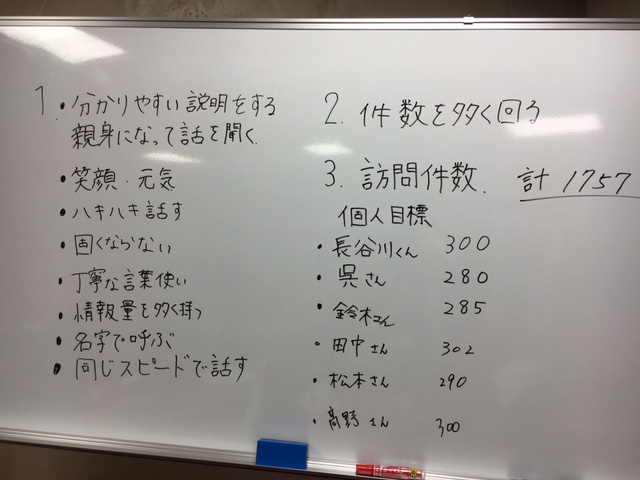 1. ・分かりやすい説明をする
親身になって話を聞く.
・笑顔・元気
・ハキハキ話す
・固くならない
・丁寧な言葉使い
・情報量を多く持つ
・名字で呼ぶ
・同じスピードで話す
2. 件数を多く回る
3. 訪問件数. 計 1757
個人目標
・長谷川くん 300
・呉さん 280
・鈴木さん 285
・田中さん 302
・松本さん 290
・髙野さん 300